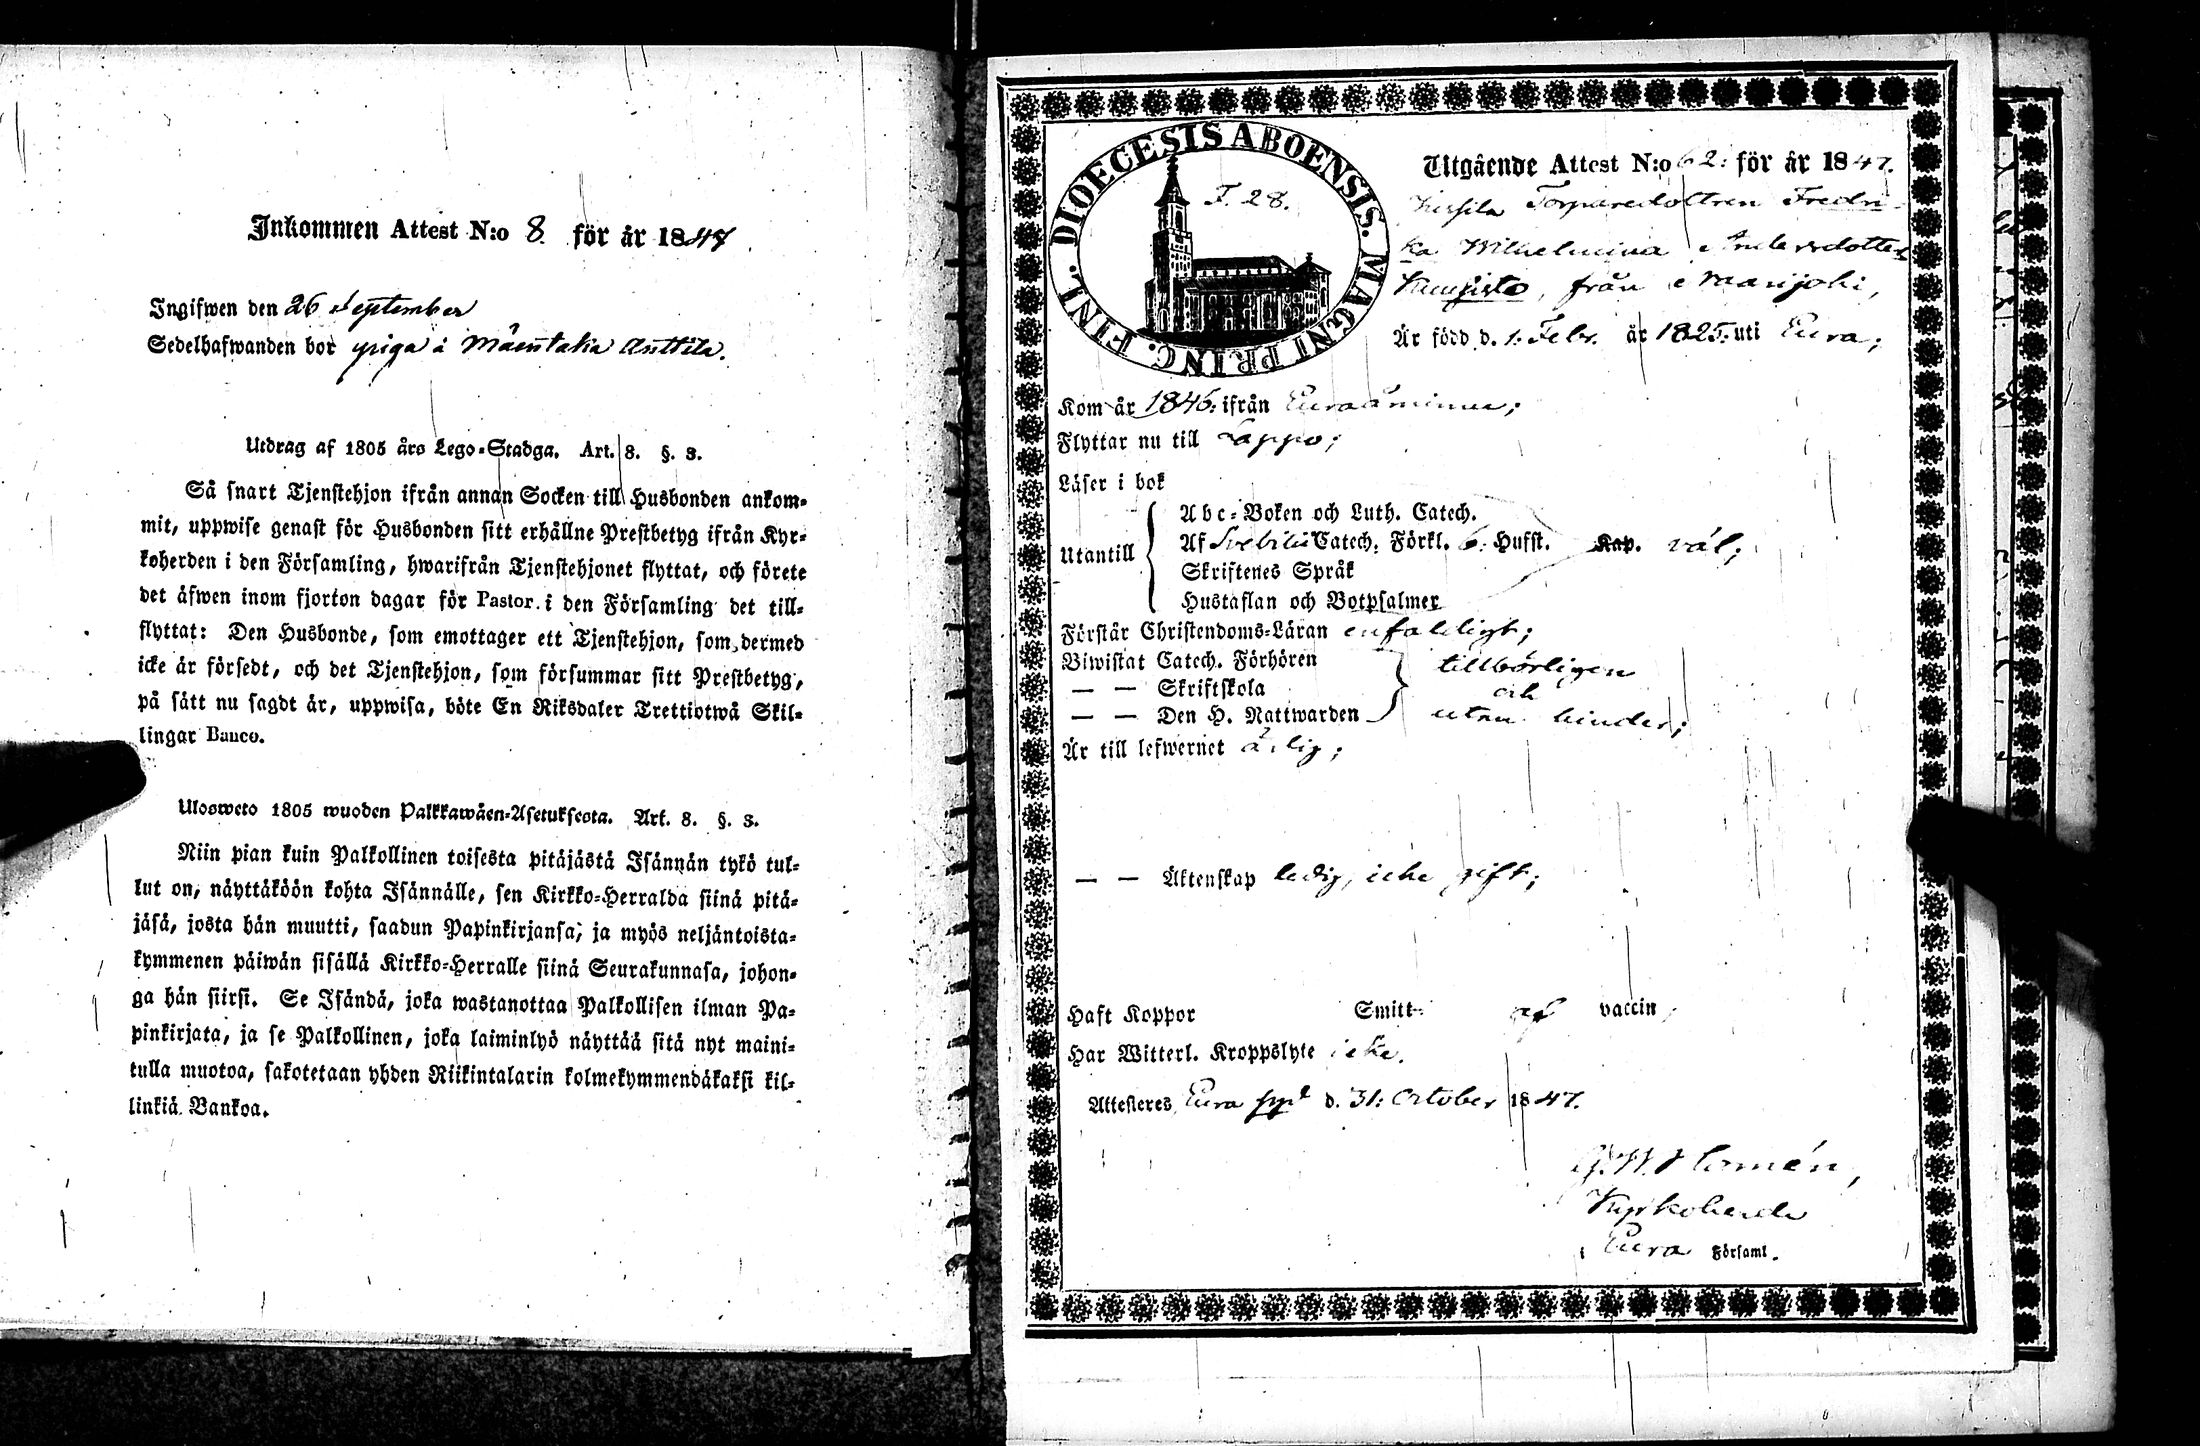 Inkommen Attest N:o 8. för år 1847
Ingifwen den 26 September
Sedelhafwanden bor å Mäentaka Anttila.
Utdrag af 1805 års Lego-Stadga. Art. 8. §. 3.
Så snart Tjenstehjon ifrån annan Socken till Husbonden ankom-
mit, uppwise genast för Husbonden sitt erhållne Prestbetyg ifrån Kyr-
koherden i den Församling, hwarifrån Tjenstehjonet flyttat, och förete
det äfwen inom fjorton dagar för Pastor i den Församling det till-
flyttat: Den Husbonde, som emottager ett Tjenstehjon, som dermed
icke är försedt, och det Tjenstehjon, som försummar sitt Prestbetyg,
på sätt nu sagdt är, uppwisa, böte En Riksdaler Trettiotwå Skil-
lingar Banco.
Ulosweto 1805 wuoden Palkkawäen-Asetuksesta. Art. 8. §. 3.
Niin pian kuin Palkollinen toisesta pitäjästä Isännän tykö tul-
lut on, näyttäköön kohta Isännälle, sen Kirkko-Herralda siinä pitä-
jäsä, josta hän muutti, saadun Papinkirjansa, ja myös neljäntoista-
kymmenen päiwän sisällä Kirkko-Herralle siinä Seurakunnasa, johon-
ga hän siirsi. Se Isändä, joka wastanottaa Palkollisen ilman Pa-
pinkirjata, ja se Palkollinen, joka laiminlyö näyttää sitä nyt maini-
tulla muotoa, sakotetaan yhden Riikintalarin kolmekymmendäkaksi kil-
linkiä Bankoa.
DIOECESIS ABOENSIS. MAGNI PRINC. FINL.
F. 28.
Utgående Attest N:o 62: för år 1847.
Torparedottren Fredri-
ka Wilhelmina Andersdotter
från Naarijoki,
Är född d. 1. Febr. år 1825: uti Eura;
Kom år 1846: ifrån Euraåminne;
Flyttar nu till Lappo;
Läser i bok
Utantill
Abc-Boken och Luth. Catech.
Af Svebilii Catech. Förkl. 6: Hufst. Kap. väl;
Skriftenes Språk
Hustaflan och Botpsalmer
Förstår Christendoms-Läran enfaldigt;
Biwistat Catech. Förhören
— — Skriftskola
— — Den H. Nattwarden
tillbörligen
och
utan hinder;
Är till lefwernet ärlig;
— — Äktenskap ledig, icke gift;
Haft Koppor Smitt- af vaccin,
Har Witterl. Kroppslyte icke.
Attesteres, Eura d. 31: October 1847.
G. W. Homén,
Kyrkoherde
i Eura Församl.